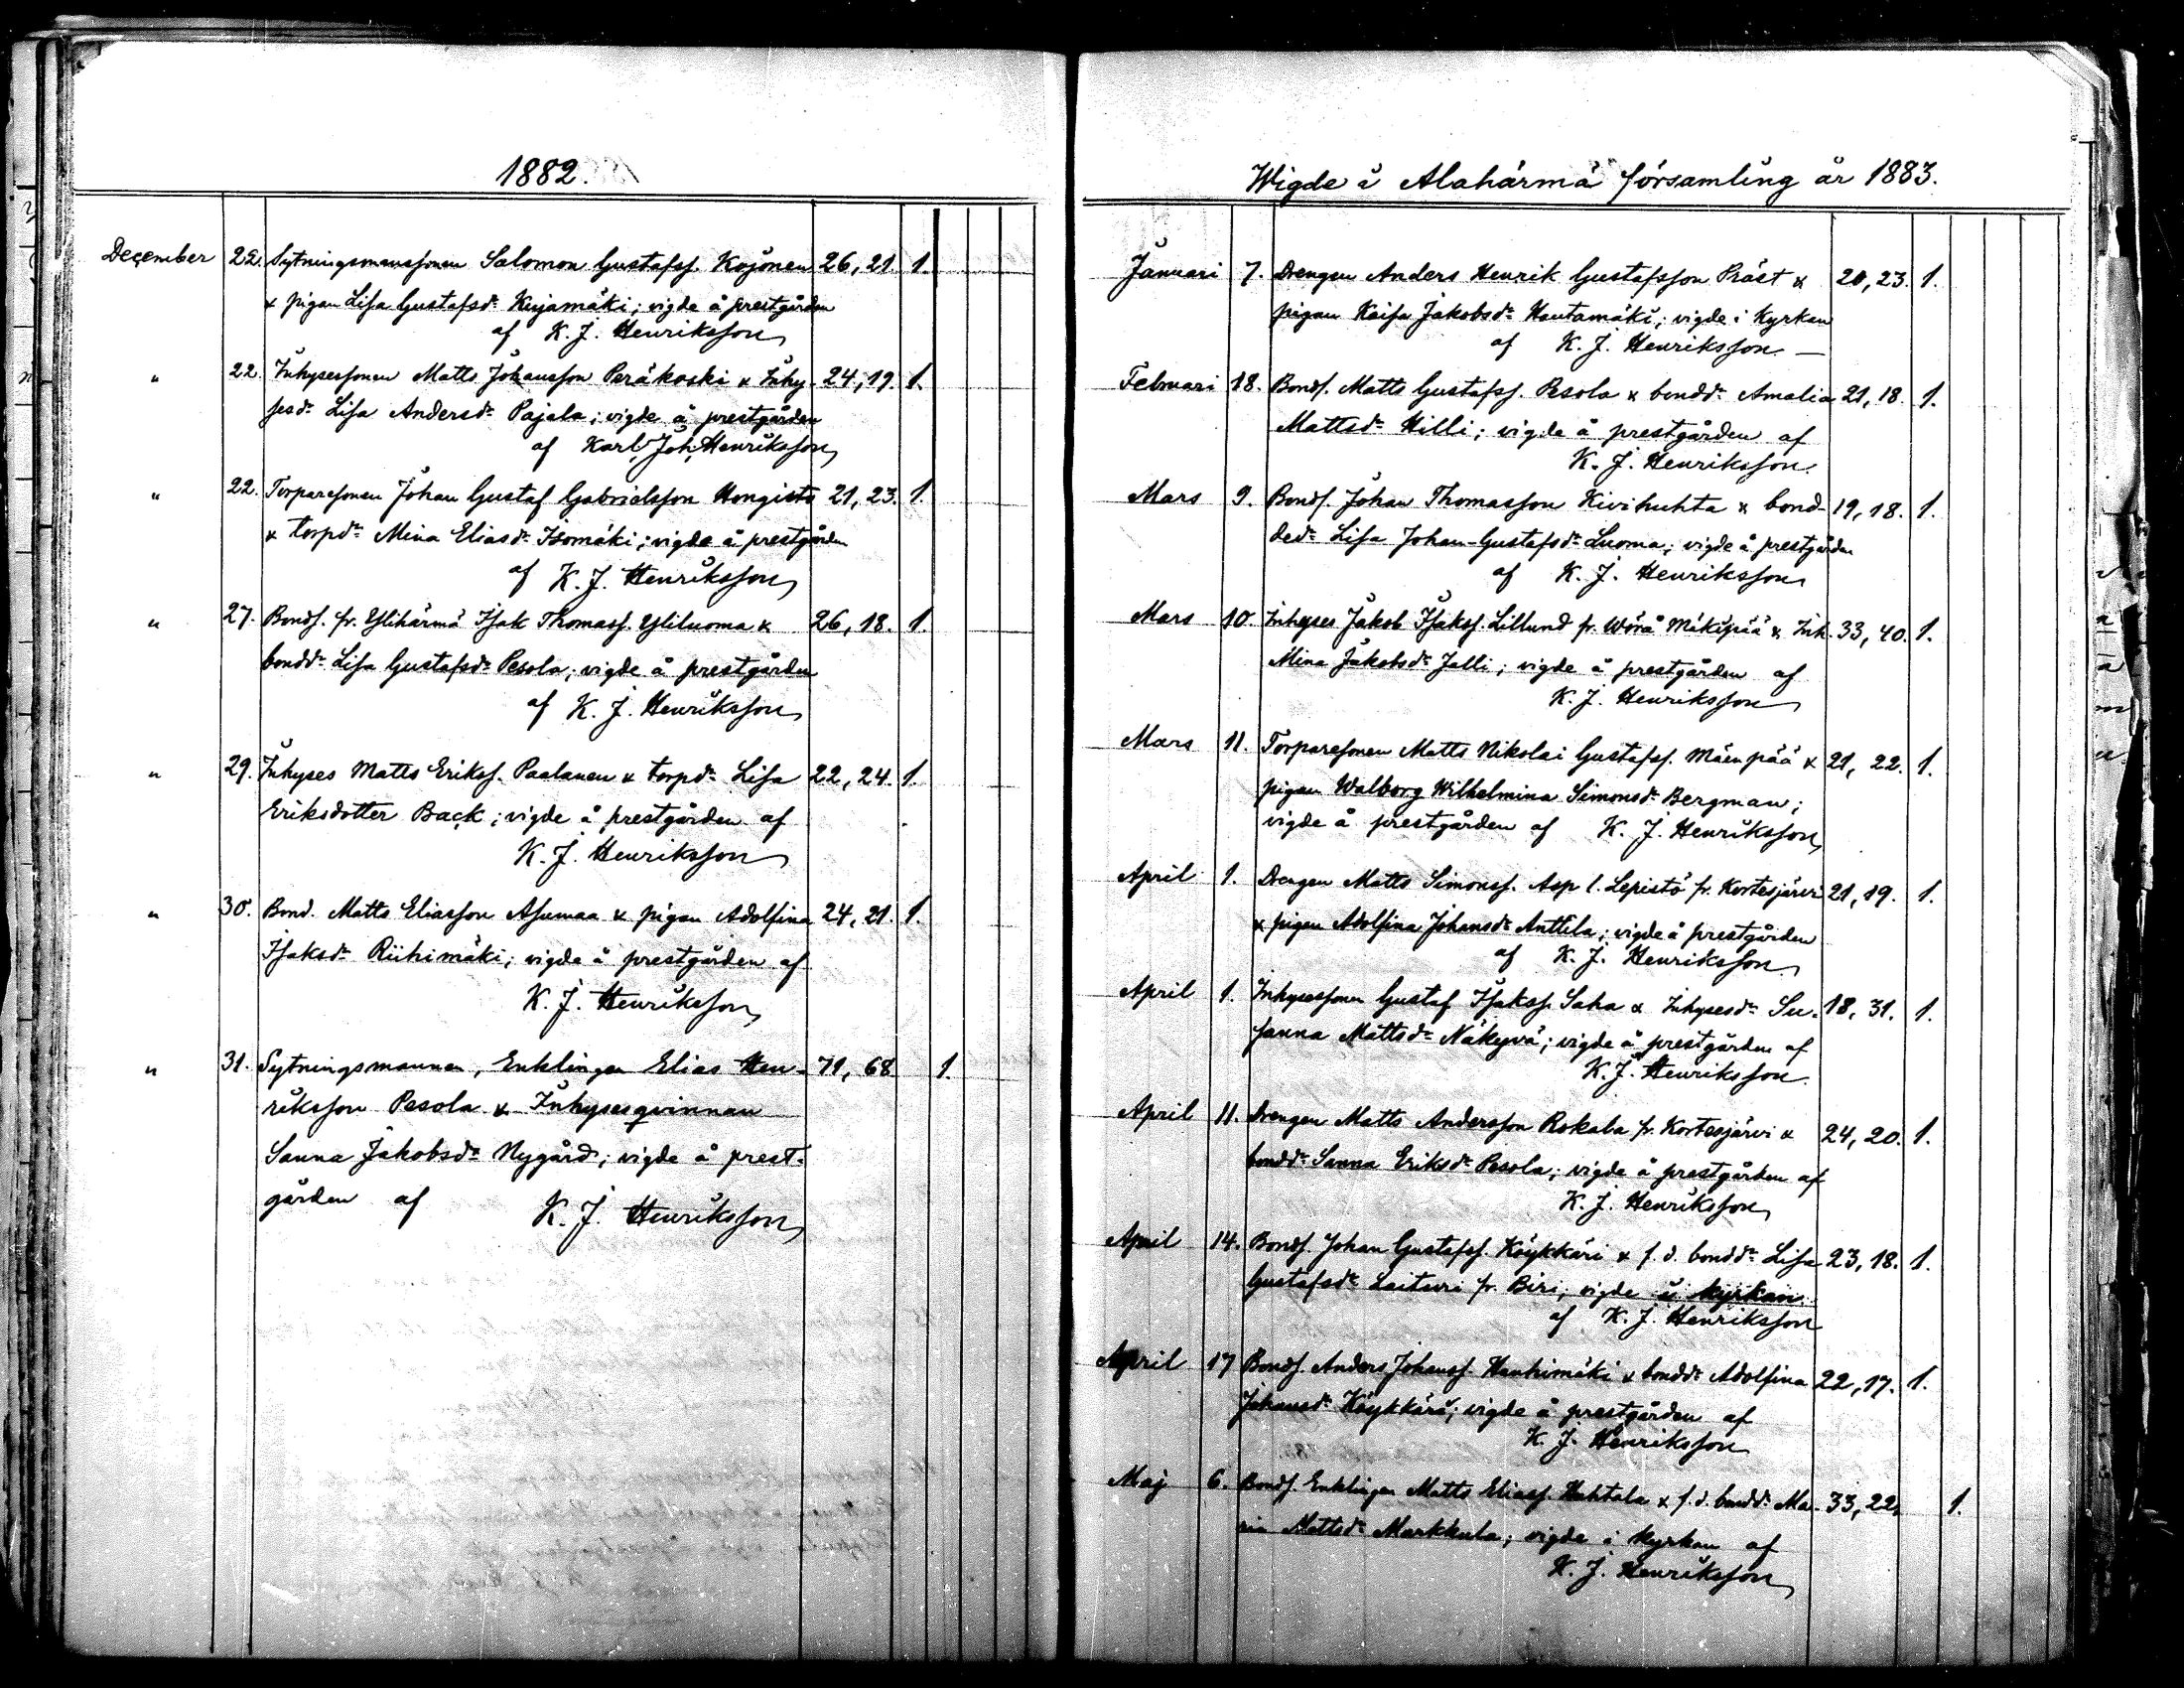 1882.
December 22. Sytningsmanssonen Salomon Gustafss. Kojonen 26, 21 1.
& pigan Lisa Gustafsdr Kujamäki; vigde å prestgården
af K. J. Henriksson
" 22. Inhysessonen Matts Johansson Peräkoski & Inhy- 24, 19. 1.
sesdr Lisa Andersdr Pajala; vigde å prestgården
af Karl Joh. Henriksson
" 22. Torparesonen Johan Gustaf Gabrielsson Hongisto 21, 23. 1.
& torpdr Mina Eliasdr Isomäki; vigde å prestgården
af K. J. Henriksson
" 27. Bonds. fr. Ylihärmä Isak Thomass. Yliluoma & 26, 18. 1.
bonddr Lisa Gustafsdr Pesola; vigde å prestgården
af K. J. Henriksson
" 29. Inhyses Matts Erikss. Paalanen & torpdr Lisa 22, 24. 1.
Eriksdotter Back; vigde å prestgården af
K. J. Henriksson
" 30. Bond. Matts Eliasson Asumaa & pigan Adolfina 24, 21. 1.
Isaksdr Riihimäki; vigde å prestgården af
K. J. Henriksson
" 31. Sytningsmannen, Enklingen Elias Hen- 71, 68 1.
riksson Pesola & Inhysesqvinnan
Sanna Jakobsdr Nygård; vigde å prest-
gården af K. J. Henriksson
Wigde i Alahärmä församling år 1883.
Januari 7. Drengen Anders Henrik Gustafsson Präst & 20, 23. 1.
pigan Kaisa Jakobsdr Hautamäki; vigde i Kyrkan
af K. J. Henriksson —
Februari 18. Bonds. Matts Gustafss. Pesola & bonddr Amalia 21, 18 1.
Mattsdr Hilli; vigde å prestgården af
K. J. Henriksson.
Mars 9. Bonds. Johan Thomasson Kivihuhta & bond- 19, 18. 1.
dedr Lisa Johan-Gustafsdr Luoma; vigde å prestgården
af K. J. Henriksson
Mars 10. Inhyses Jakob Isakss. Lillund fr. Wörå Mäkipää & Inh. 33, 40. 1.
Mina Jakobsdr Jalli; vigde å prestgården af
K. J. Henriksson
Mars 11. Torparesonen Matts Nikolai Gustafss. Mäenpää & 21, 22. 1.
pigan Walborg Wilhelmina Simonsdr Bergman;
vigde å prestgården af K. J. Henriksson
April 1. Drengen Matts Simonss. Asp l. Lepistö fr. Kortesjärvi 21, 19. 1.
& pigan Adolfina Johansdr Anttila; vigde å prestgården
af K. J. Henriksson.
April 1. Inhysessonen Gustaf Isakss. Saha & Inhysesdr Su- 18, 31. 1.
sanna Mattsdr Näkyvä; vigde å prestgården af
K. J. Henriksson.
April 11. Drengen Matts Andersson Rokala fr. Kortesjärvi & 24, 20. 1.
bonddr Sanna Eriksdr Pesola; vigde å prestgården af
K. J. Henriksson
April 14. Bonds. Johan Gustafss. Köykkäri & f. d. bonddr Lisa 23, 18. 1.
Gustafsdr Laituri fr. Biri, vigde i kyrkan.
af K. J. Henriksson
April 17 Bonds. Anders Johanss. Hanhimäki & bonddr Adolfina 22, 17. 1.
Johansdr Köykkäri; vigde å prestgården af
K. J. Henriksson
Maj 6. Bonds. Enklingen Matts Eliass. Huhtala & f. d. bonddr Ma- 33, 22, 1.
ria Mattsdr Markkula; vigde i Kyrkan af
K. J. Henriksson